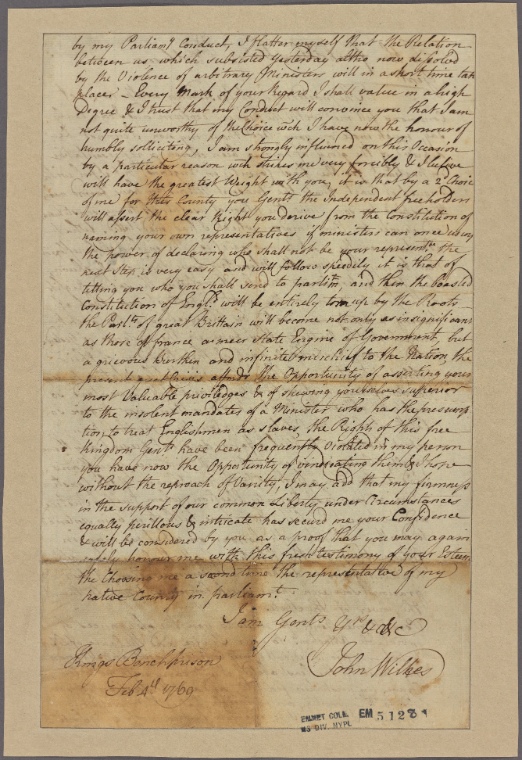 by my Parliamy Conduct, I flatter myself that the Relation
between us which subsisted yesterday altho now disolved
by the Violence of arbitrary Ministers will in a short time take
place - Every Mark of your Regard I shall value in a high
Degree & I trust that my Conduct will convince you that I am
not quite unworthy of the Choice wch I have now the honour of
humbly solliciting, I am strongly influenced on this Occasion
by a particular reason wch strikes me very forcibly & I believe
will have the greatest Weight with you, it is that by a 2d Choice
of me for this County you Gentn the Independent freeholders
will assert the clear Right you derive from the Constitution of
naming your own representatives if ministers can once usurp
the power of declaring who shall not be your representve the
next Step is very easy and will follow speedily it is that of
telling you who you shall send to parlimt, and then the boasted
Constitution of Engld will be entirely torn up by the Roots
the Parlt of great Brittain will become not only as insignificant
as those of france a meer State Engine of Government, but
a grievous Burthen and infinite mischief to the Nation, the
present affords the Opportunity of asserting your
most Valuable privileges & of shewing yourselves superior
to the insolent mandates of a Minister who has the presump
tion to treat Englishmen as slaves, the Rights of this free
Kingdom Gentn have been frequently violated in my person
you have now the Opportunity of vindicating them & I hope
without the reproach of Vanity, I may add that my firmness
in the support of our common Liberty under Circumstances
equally perillous & intricate has secured me your Confidence
& will be considered by you as a proof that you may again
safely honour me with this fresh testimony of your Esteem
the Choosing me a second time the representative of my
native County in parliamt.
I am Gentn Yrs &c &c
Kings Bench prison
Feb 4th 1769
John Wilkes
EMMET COLL. EM 5127
MS DIV. NYPL